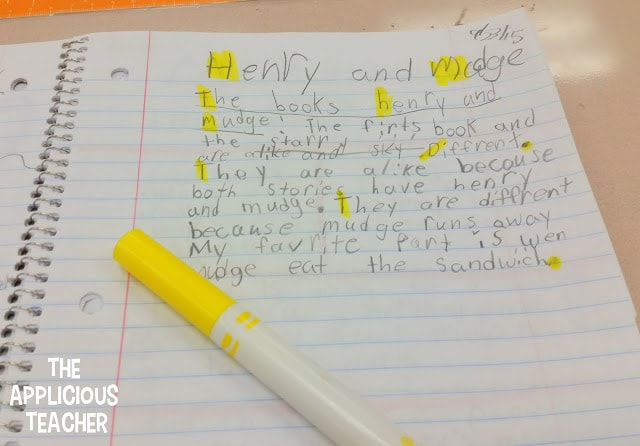 Henry and Mudge
The books henry and
mudge: The firts book and
the starry
are alike and sky Diffrent.
They are alike because
both stories have henry
and mudge. They are diffrent
because mudge runs away
My favrite Part is wen
mudge eat the sandwich.
THE
APPLICIOUS
TEACHER